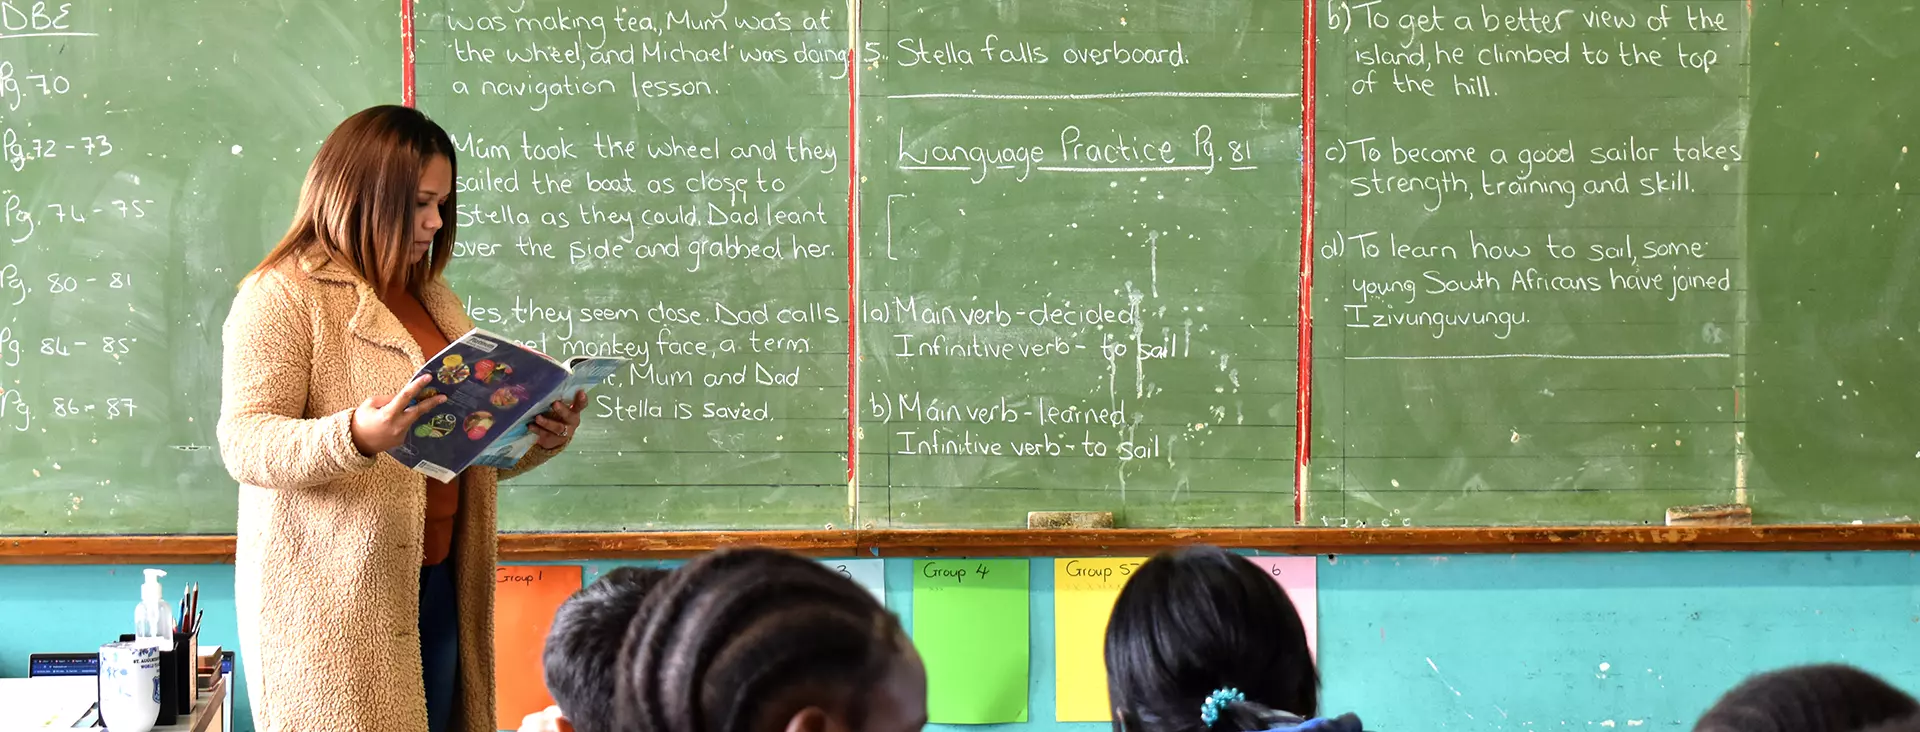 DBE
Pg. 70
Pg. 72 - 73
Pg. 74 - 75
Pg. 80 - 81
Pg. 84 - 85
Pg. 86 - 87
was making tea, Mum was at
the wheel, and Michael was doing
a navigation lesson.
Mum took the wheel and they
sailed the boat as close to
Stella as they could. Dad leant
over the side and grabbed her.
they seem close. Dad calls
monkey face, a term
Mum and Dad
Stella is saved.
5. Stella falls overboard.
Language Practice Pg. 81
1a) Main verb - decided
Infinitive verb - to sail
b) Main verb - learned
Infinitive verb - to sail
b) To get a better view of the
island, he climbed to the top
of the hill.
c) To become a good sailor takes
strength, training and skill.
d) To learn how to sail, some
young South Africans have joined
Izivunguvungu.
Group 1
3
Group 4
Group 5
6